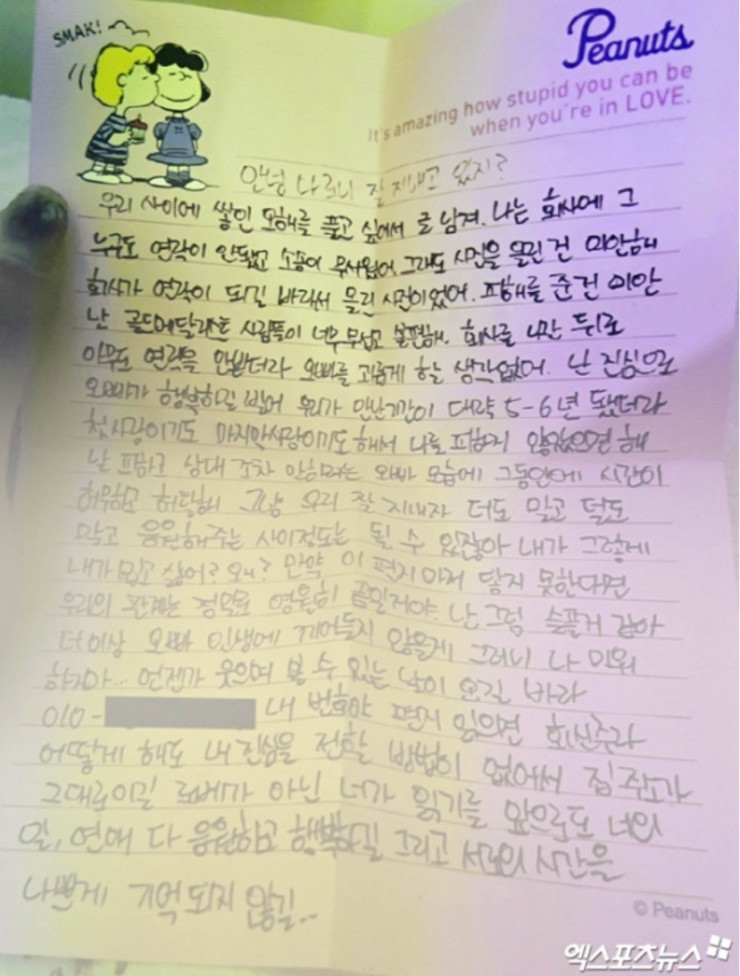 SMAK!
Peanuts
It's amazing how stupid you can be
when you're in LOVE.
안녕 나로니 잘 지내고 있지?
우리 사이에 쌓인 오해를 풀고 싶어서 글 남겨. 나는 회사에 그
누구도 연락이 안됐고 소송이 무서웠어. 그래도 사진을 올린 건 미안해
회사가 연락이 되길 바라서 올린 사진이었어. 피해를 준건 미안
난 골드메달리스트 사람들이 너무 무섭고 불편해. 회사를 나간 뒤로
아무도 연락을 안받더라 오빠를 괴롭게 할 생각없어. 난 진심으로
오빠가 행복하길 빌어 우리가 만난기간이 대략 5-6년 됐더라
첫사랑이기도 마지막사랑이기도 해서 나를 피하지 않았으면 해
날 피하고 상대 조차 안하려는 오빠 모습에 그동안에 시간이
허무하고 허탈해 그냥 우리 잘 지내자 더도 말고 덜도
말고 응원해주는 사이정도는 될 수 있잖아 내가 그렇게
내가 밉고 싫어? 왜? 만약 이 편지마저 닿지 못한다면
우리의 관계는 정말로 영원히 끝일거야. 난 그럼 슬플거 같아
더이상 오빠 인생에 끼어들지 않을게 그러니 나 미워
하지마... 언젠가 웃으며 볼 수 있는 날이 오길 바라
010- 내 번호야 편지 읽으면 회신주라
어떻게 해도 내 진심을 전할 방법이 없어서 집 주소가
그대로이길 로베가 아닌 너가 읽기를 앞으로도 너의
일, 연애 다 응원하고 행복하길 그리고 서로의 시간을
나쁘게 기억되지 않길..
© Peanuts
엑스포츠뉴스